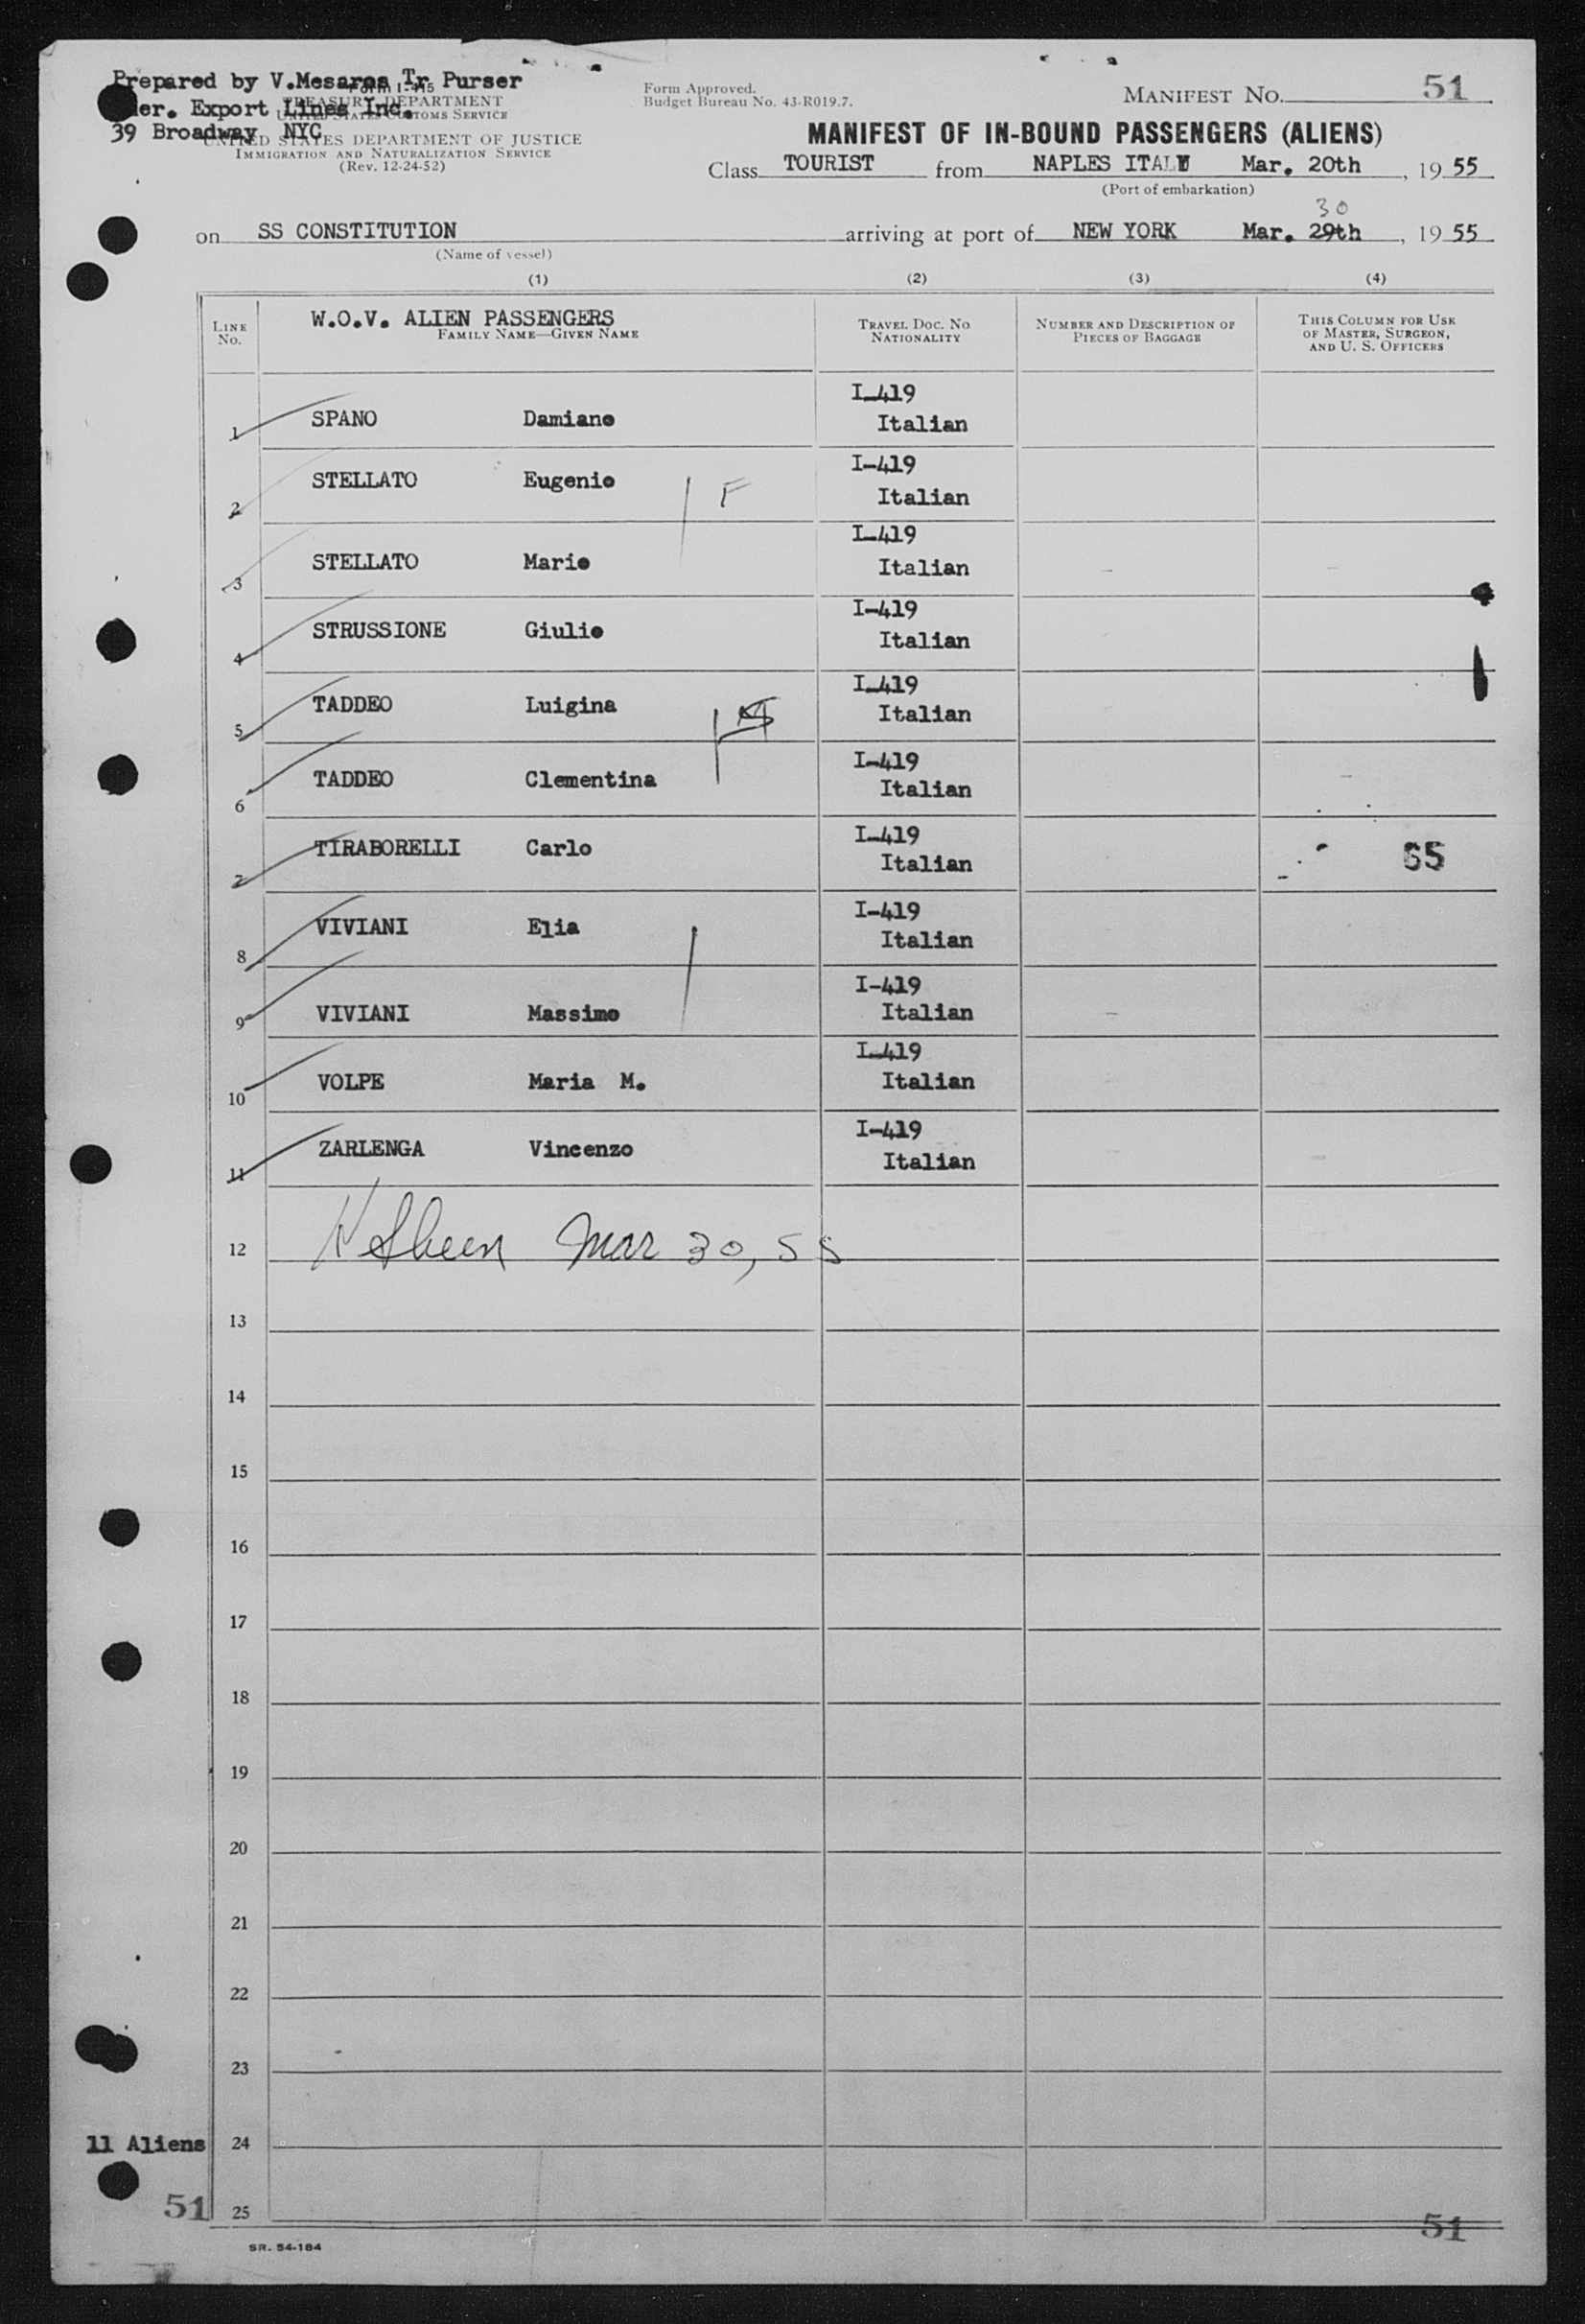 Prepared by V.Mesaros Tr. Purser
Form I-415
Form Approved.
Budget Bureau No. 43-R019.7.
MANIFEST NO. 51
Amer. Export Lines Inc.
TREASURY DEPARTMENT
UNITED STATES CUSTOMS SERVICE
39 Broadway NYC
UNITED STATES DEPARTMENT OF JUSTICE
IMMIGRATION AND NATURALIZATION SERVICE
(Rev. 12-24-52)
MANIFEST OF IN-BOUND PASSENGERS (ALIENS)
Class TOURIST from NAPLES ITALY Mar. 20th, 19 55
(Port of embarkation)
30
on SS CONSTITUTION arriving at port of NEW YORK Mar. 29th, 19 55
(Name of vessel)
(1) (2) (3) (4)
LINE NO.
W.O.V. ALIEN PASSENGERS
FAMILY NAME—GIVEN NAME
TRAVEL DOC. NO.
NATIONALITY
NUMBER AND DESCRIPTION OF
PIECES OF BAGGAGE
THIS COLUMN FOR USE
OF MASTER, SURGEON,
AND U. S. OFFICERS
1 SPANO Damiano I-419 Italian
2 STELLATO Eugenio F I-419 Italian
3 STELLATO Mario I-419 Italian
4 STRUSSIONE Giulio I-419 Italian
5 TADDEO Luigina I-419 Italian
6 TADDEO Clementina I-419 Italian
7 TIRABORELLI Carlo I-419 Italian 65
8 VIVIANI Elia I-419 Italian
9 VIVIANI Massimo I-419 Italian
10 VOLPE Maria M. I-419 Italian
11 ZARLENGA Vincenzo I-419 Italian
12 Mar 30, 55
13
14
15
16
17
18
19
20
21
22
23
11 Aliens 24
51 25
51
SR. 54-184